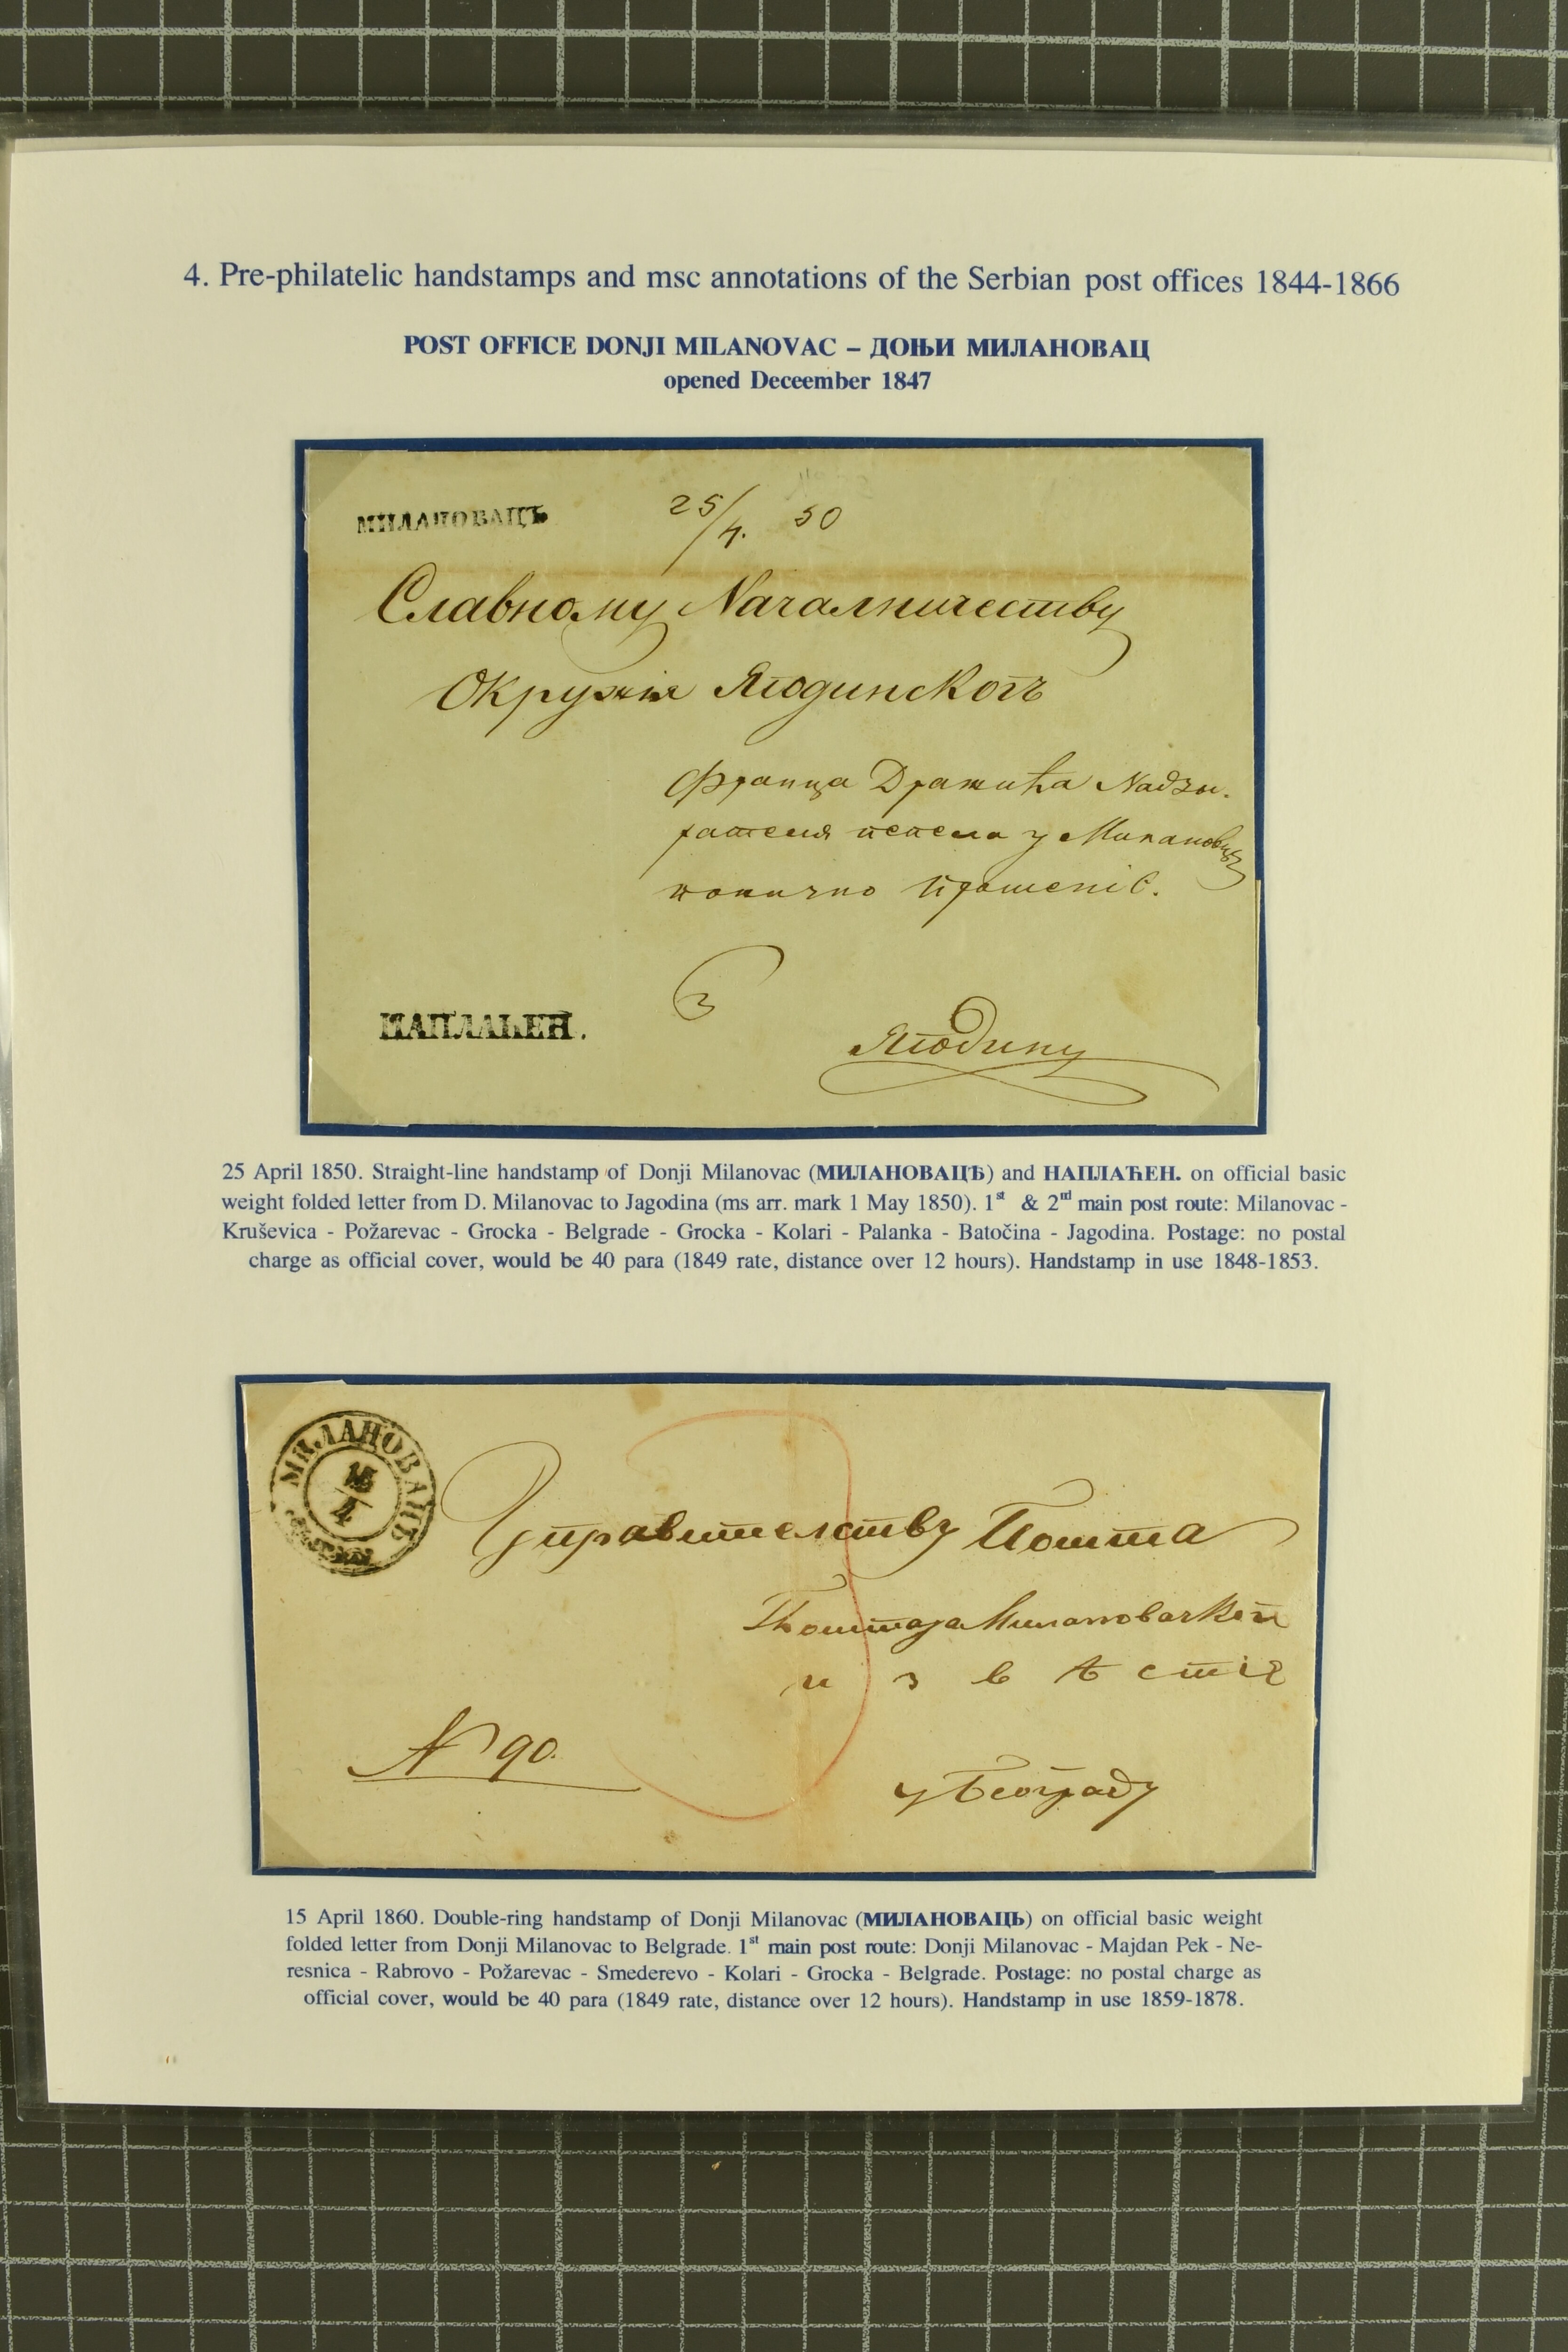 4. Pre-philatelic handstamps and msc annotations of the Serbian post offices 1844-1866
POST OFFICE DONJI MILANOVAC – ДОЊИ МИЛАНОВАЦ
opened Deceember 1847
МИЛАНОВАЦЪ
25/4. 50
Славному Началничеству
Окружія Ягодинскогъ
Франца Дражића Надзи-
рателя пепела у Милановцу
понизно Прошеніе.
НАПЛАЋЕН.
Ягодину
25 April 1850. Straight-line handstamp of Donji Milanovac (МИЛАНОВАЦЪ) and НАПЛАЋЕН. on official basic
weight folded letter from D. Milanovac to Jagodina (ms arr. mark 1 May 1850). 1st & 2nd main post route: Milanovac -
Kruševica - Požarevac - Grocka - Belgrade - Grocka - Kolari - Palanka - Batočina - Jagodina. Postage: no postal
charge as official cover, would be 40 para (1849 rate, distance over 12 hours). Handstamp in use 1848-1853.
МИЛАНОВАЦЪ
15/4
Управителству Пошта
Поштара Милановачког
извѣстіе
N 90.
у Београду
15 April 1860. Double-ring handstamp of Donji Milanovac (МИЛАНОВАЦЬ) on official basic weight
folded letter from Donji Milanovac to Belgrade. 1st main post route: Donji Milanovac - Majdan Pek - Ne-
resnica - Rabrovo - Požarevac - Smederevo - Kolari - Grocka - Belgrade. Postage: no postal charge as
official cover, would be 40 para (1849 rate, distance over 12 hours). Handstamp in use 1859-1878.